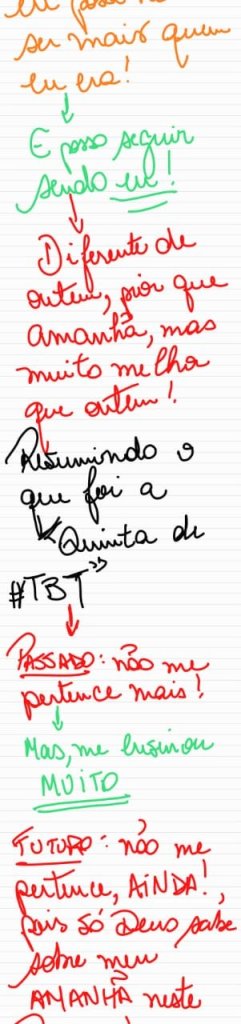 ser mais quem
eu era!
E posso seguir
sendo eu!
Diferente de
ontem, pior que
amanhã, mas
muito melhor
que ontem!
Resumindo o
que foi a
Quinta de
#TBT"
PASSADO: não me
pertence mais!
Mas, me ensinou
MUITO
FUTURO: não me
pertence, AINDA!,
pois só Deus sabe
sobre meu
AMANHÃ neste